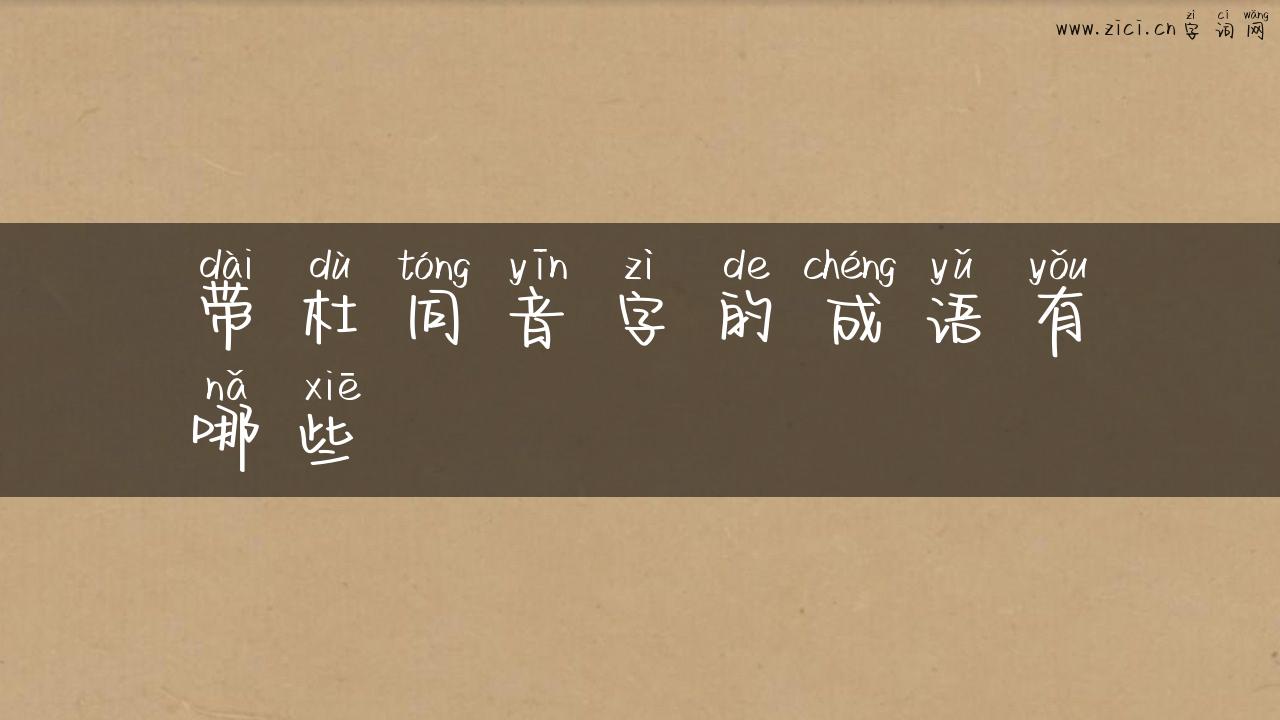 zì cí wǎng
www.zici.cn 字 词 网
dài dù tóng yīn zì de chéng yǔ yǒu
带 杜 同 音 字 的 成 语 有
nǎ xiē
哪 些